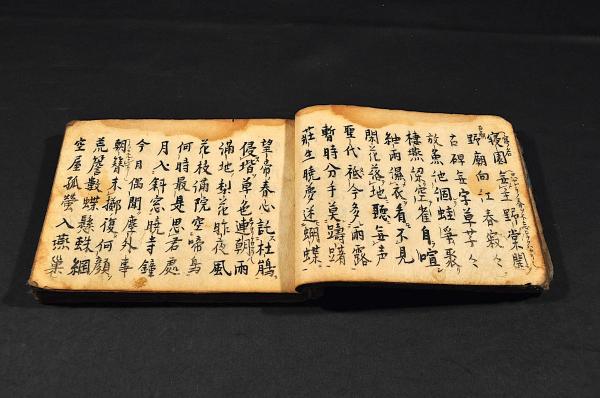 寢園無主野棠開
野廟向江春寂々
古碑無字草芊々
放魚池涸蛙爭聚
棲燕空雀自喧
細雨濕衣看不見
閑花落地聽無声
聖代祗今多雨露
暫時分手莫躊躇
莊生曉夢迷蝴蝶
望帝春心託杜鵑
侵堦草色連朝雨
滿地梨花昨夜風
花枝滿院空啼鳥
何時最是思君處
月入斜窓曉寺鐘
今日偶聞塵外事
朝簪未擲復何顏
荒簷數蝶懸蛛網
空屋孤螢入燕巢